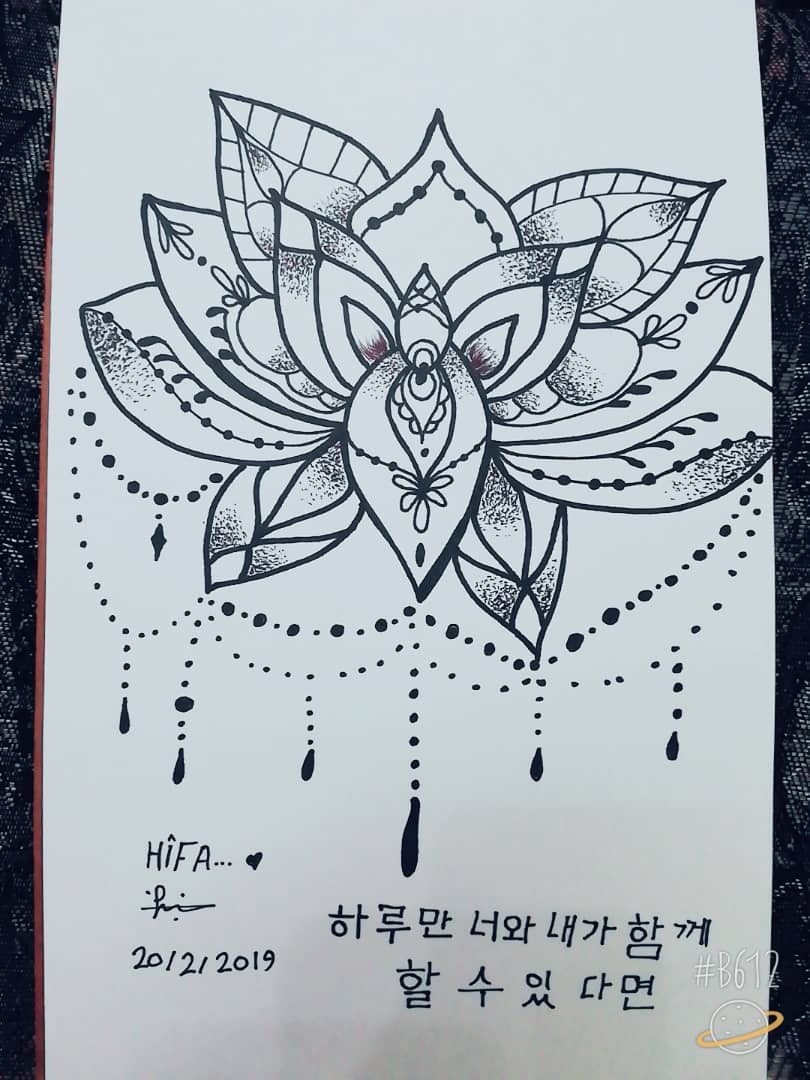 HîFA... ♥
20/2/2019
하루만 너와 내가 함께
할 수 있다면
#B612